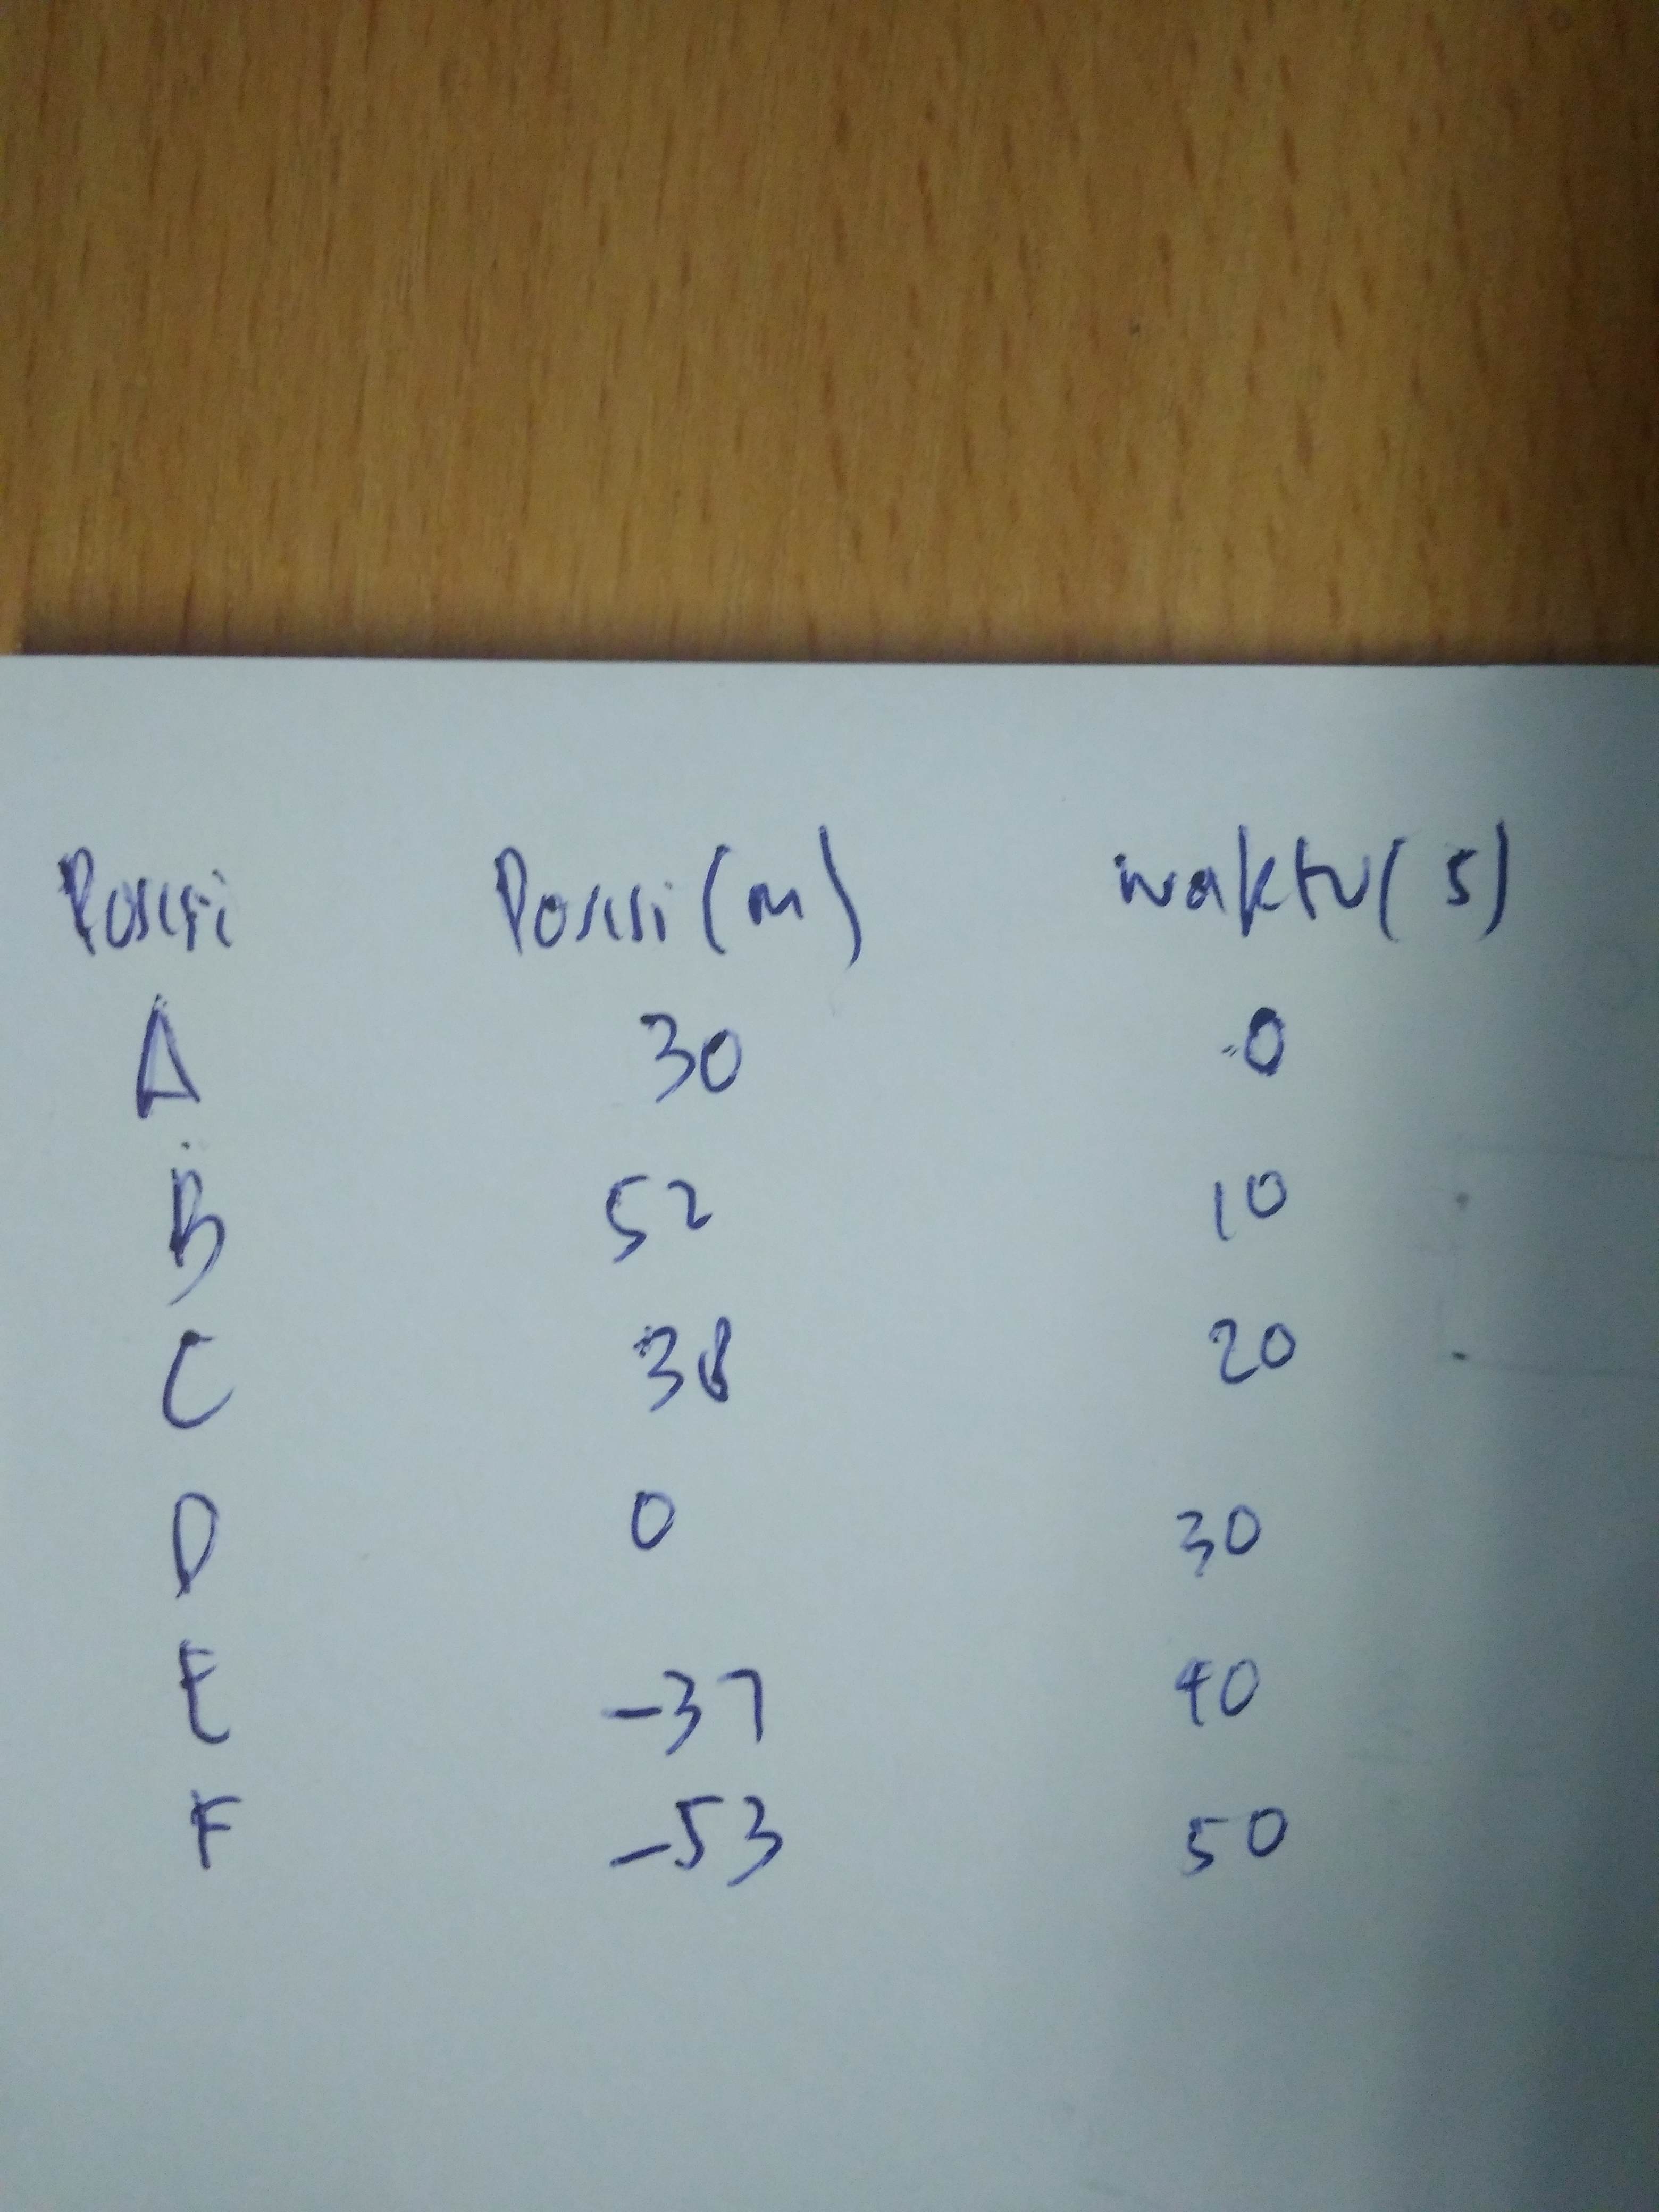 Posisi Posisi (m) waktu (s)
A 30 0
B 52 10
C 38 20
D 0 30
E -37 40
F -53 50